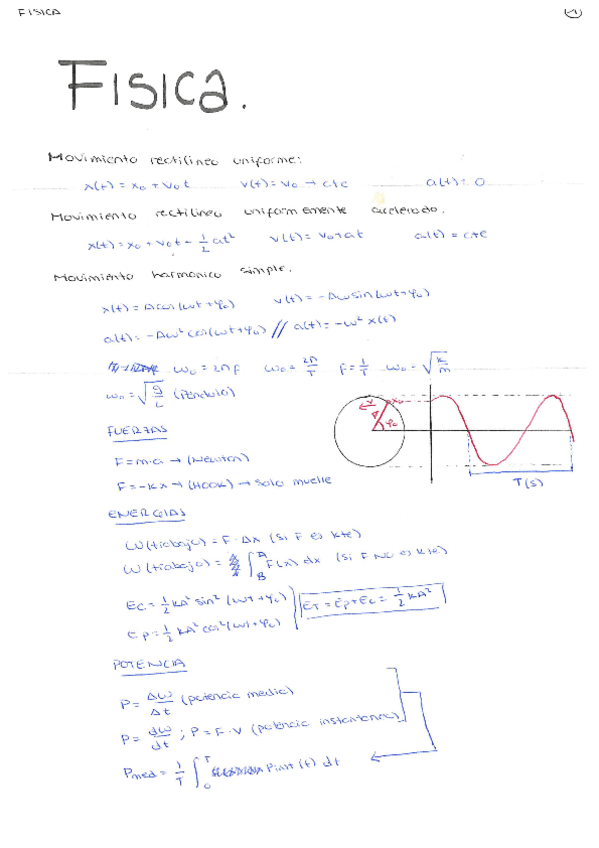 FISICA
1
FISICA.
Movimiento rectilineo uniforme:
x(t) = x₀ + v₀t    v(t) = v₀ → cte    a(t) = 0
Movimiento rectilineo uniformemente acelerado.
x(t) = x₀ + v₀t - ½at²    v(t) = v₀ + at    a(t) = cte
Movimiento harmonico simple.
x(t) = A cos(ωt + φ₀)    v(t) = -Aω sin(ωt + φ₀)
a(t) = -Aω² cos(ωt + φ₀) // a(t) = -ω² x(t)
ω₀ = 2πf    ω₀ = 2π/T    f = 1/T    ω₀ = √(k/m)
ω₀ = √(g/L) (Pendulo)
v x₀
A φ₀
FUERZAS
F = m·a → (Newton)
F = -Kx → (HOOK) → Solo muelle
T(s)
ENERGIAS
W(trabajo) = F·Δx (Si F es kte)
W(trabajo) = ∫_B^A F(x) dx (Si F NO es kte)
Ec = ½kA² sin²(ωt + φ₀)
ET = Ep + Ec = ½kA²
Ep = ½kA² cos²(ωt + φ₀)
POTENCIA
P = Δω/Δt (potencia media)
P = dω/dt ; P = F·V (potencia instantanea)
Pmed = 1/T ∫₀ᵀ Pinst(t) dt